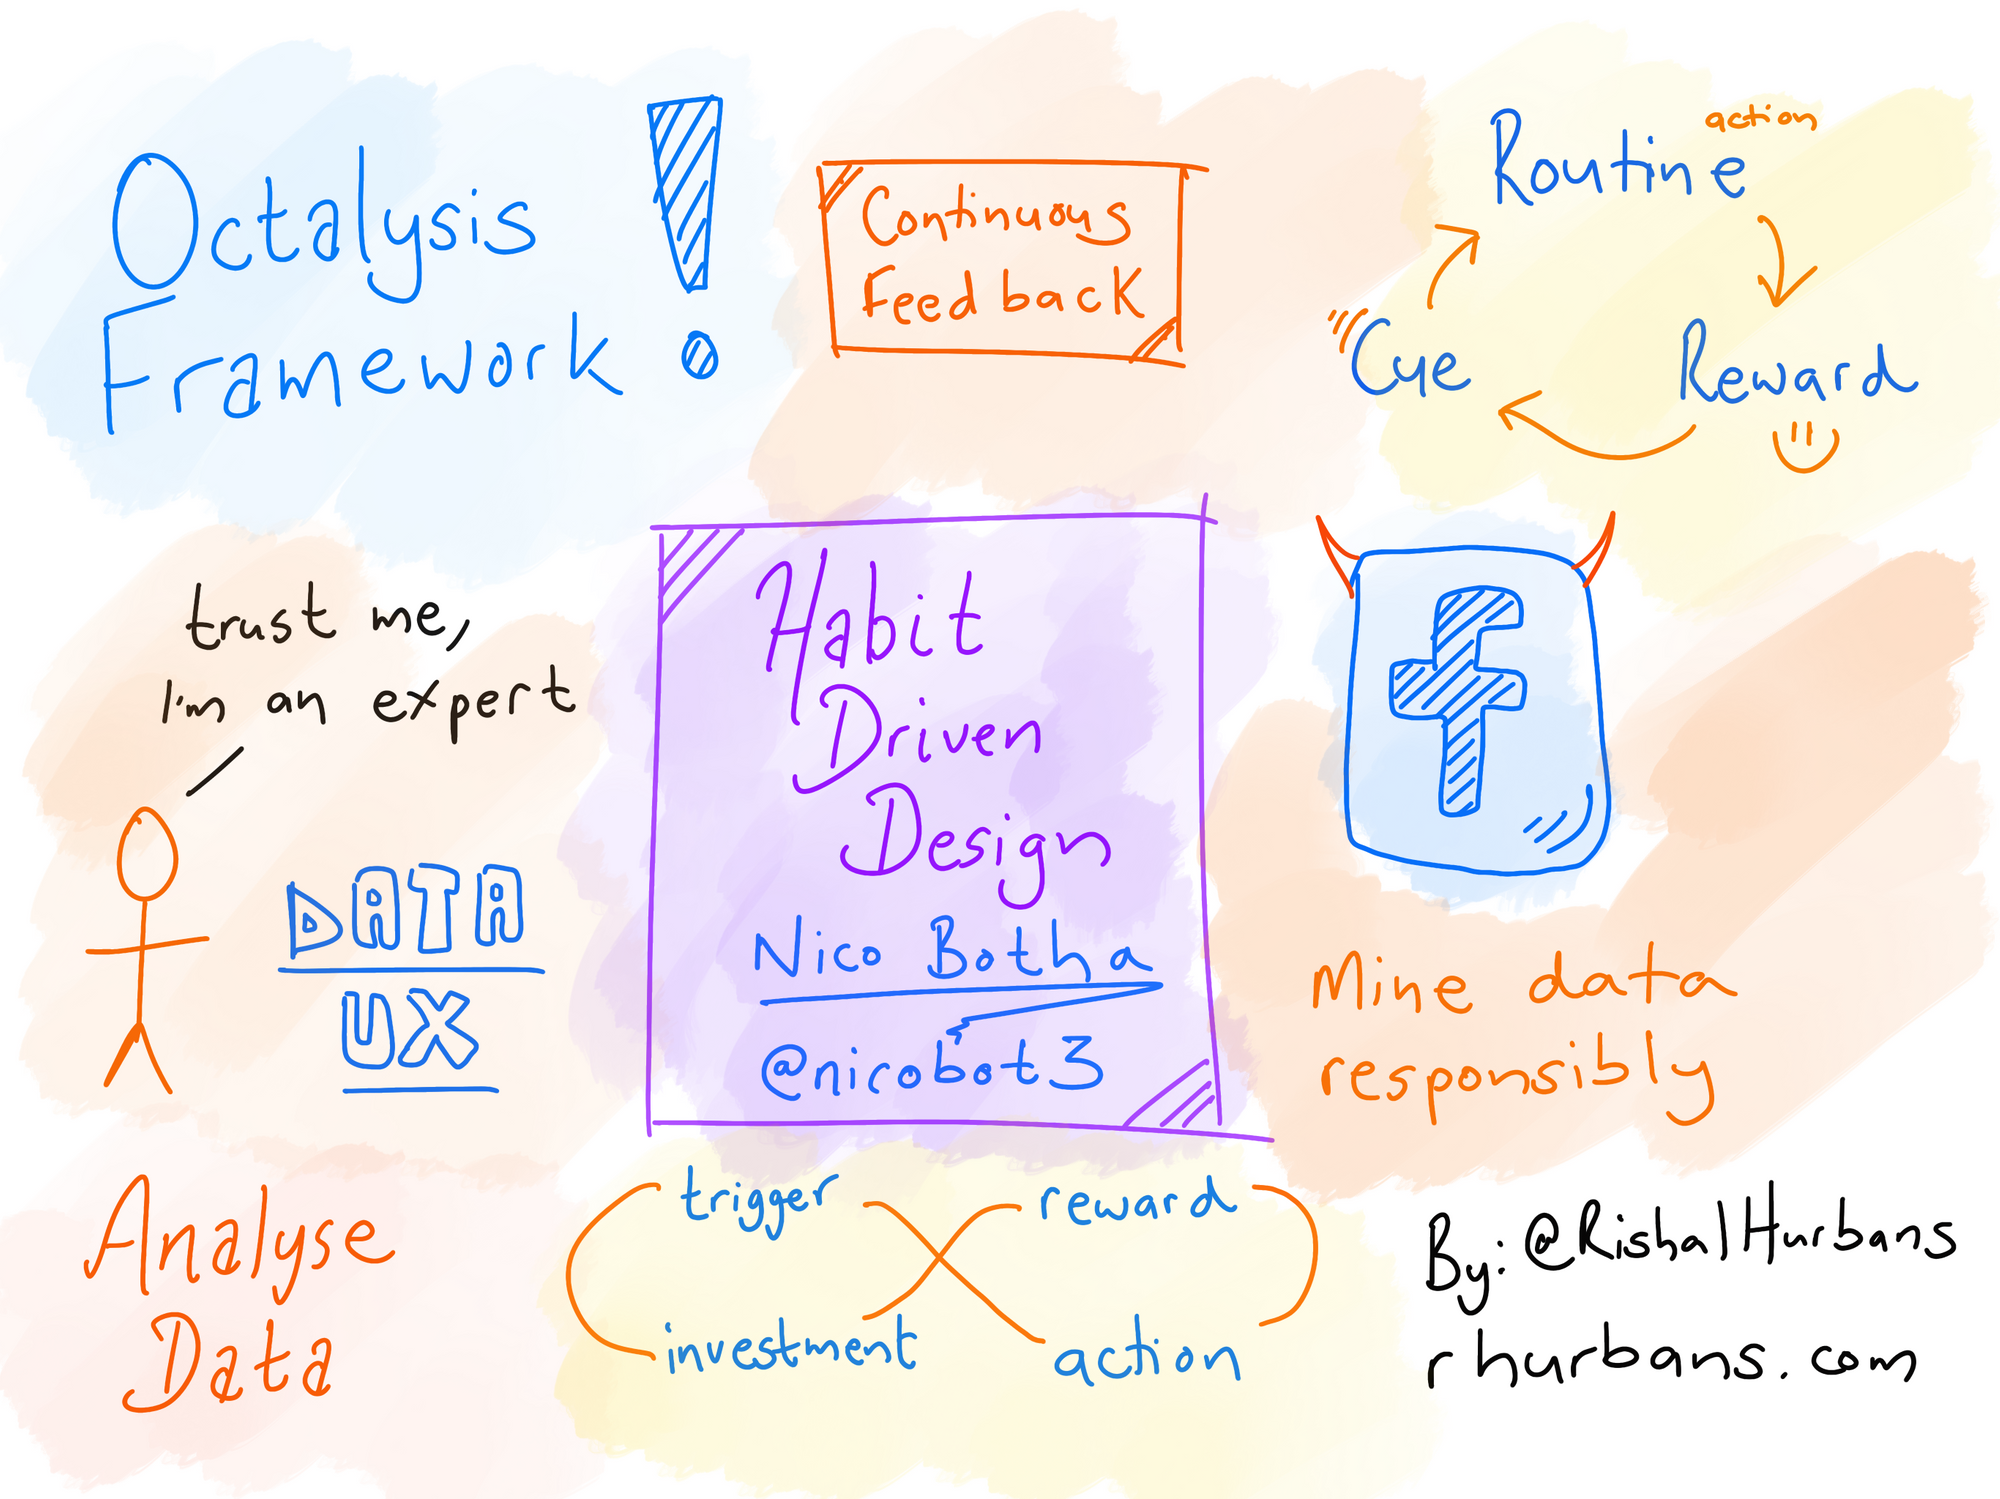 Octalysis
Framework !
Continuous
Feedback
action
Routine
Cue
Reward
trust me,
I'm an expert
DATA
UX
Habit
Driven
Design
Nico Botha
@nicobot3
f
Mine data
responsibly
Analyse
Data
trigger
reward
investment
action
By: @RishalHurbans
rhurbans.com